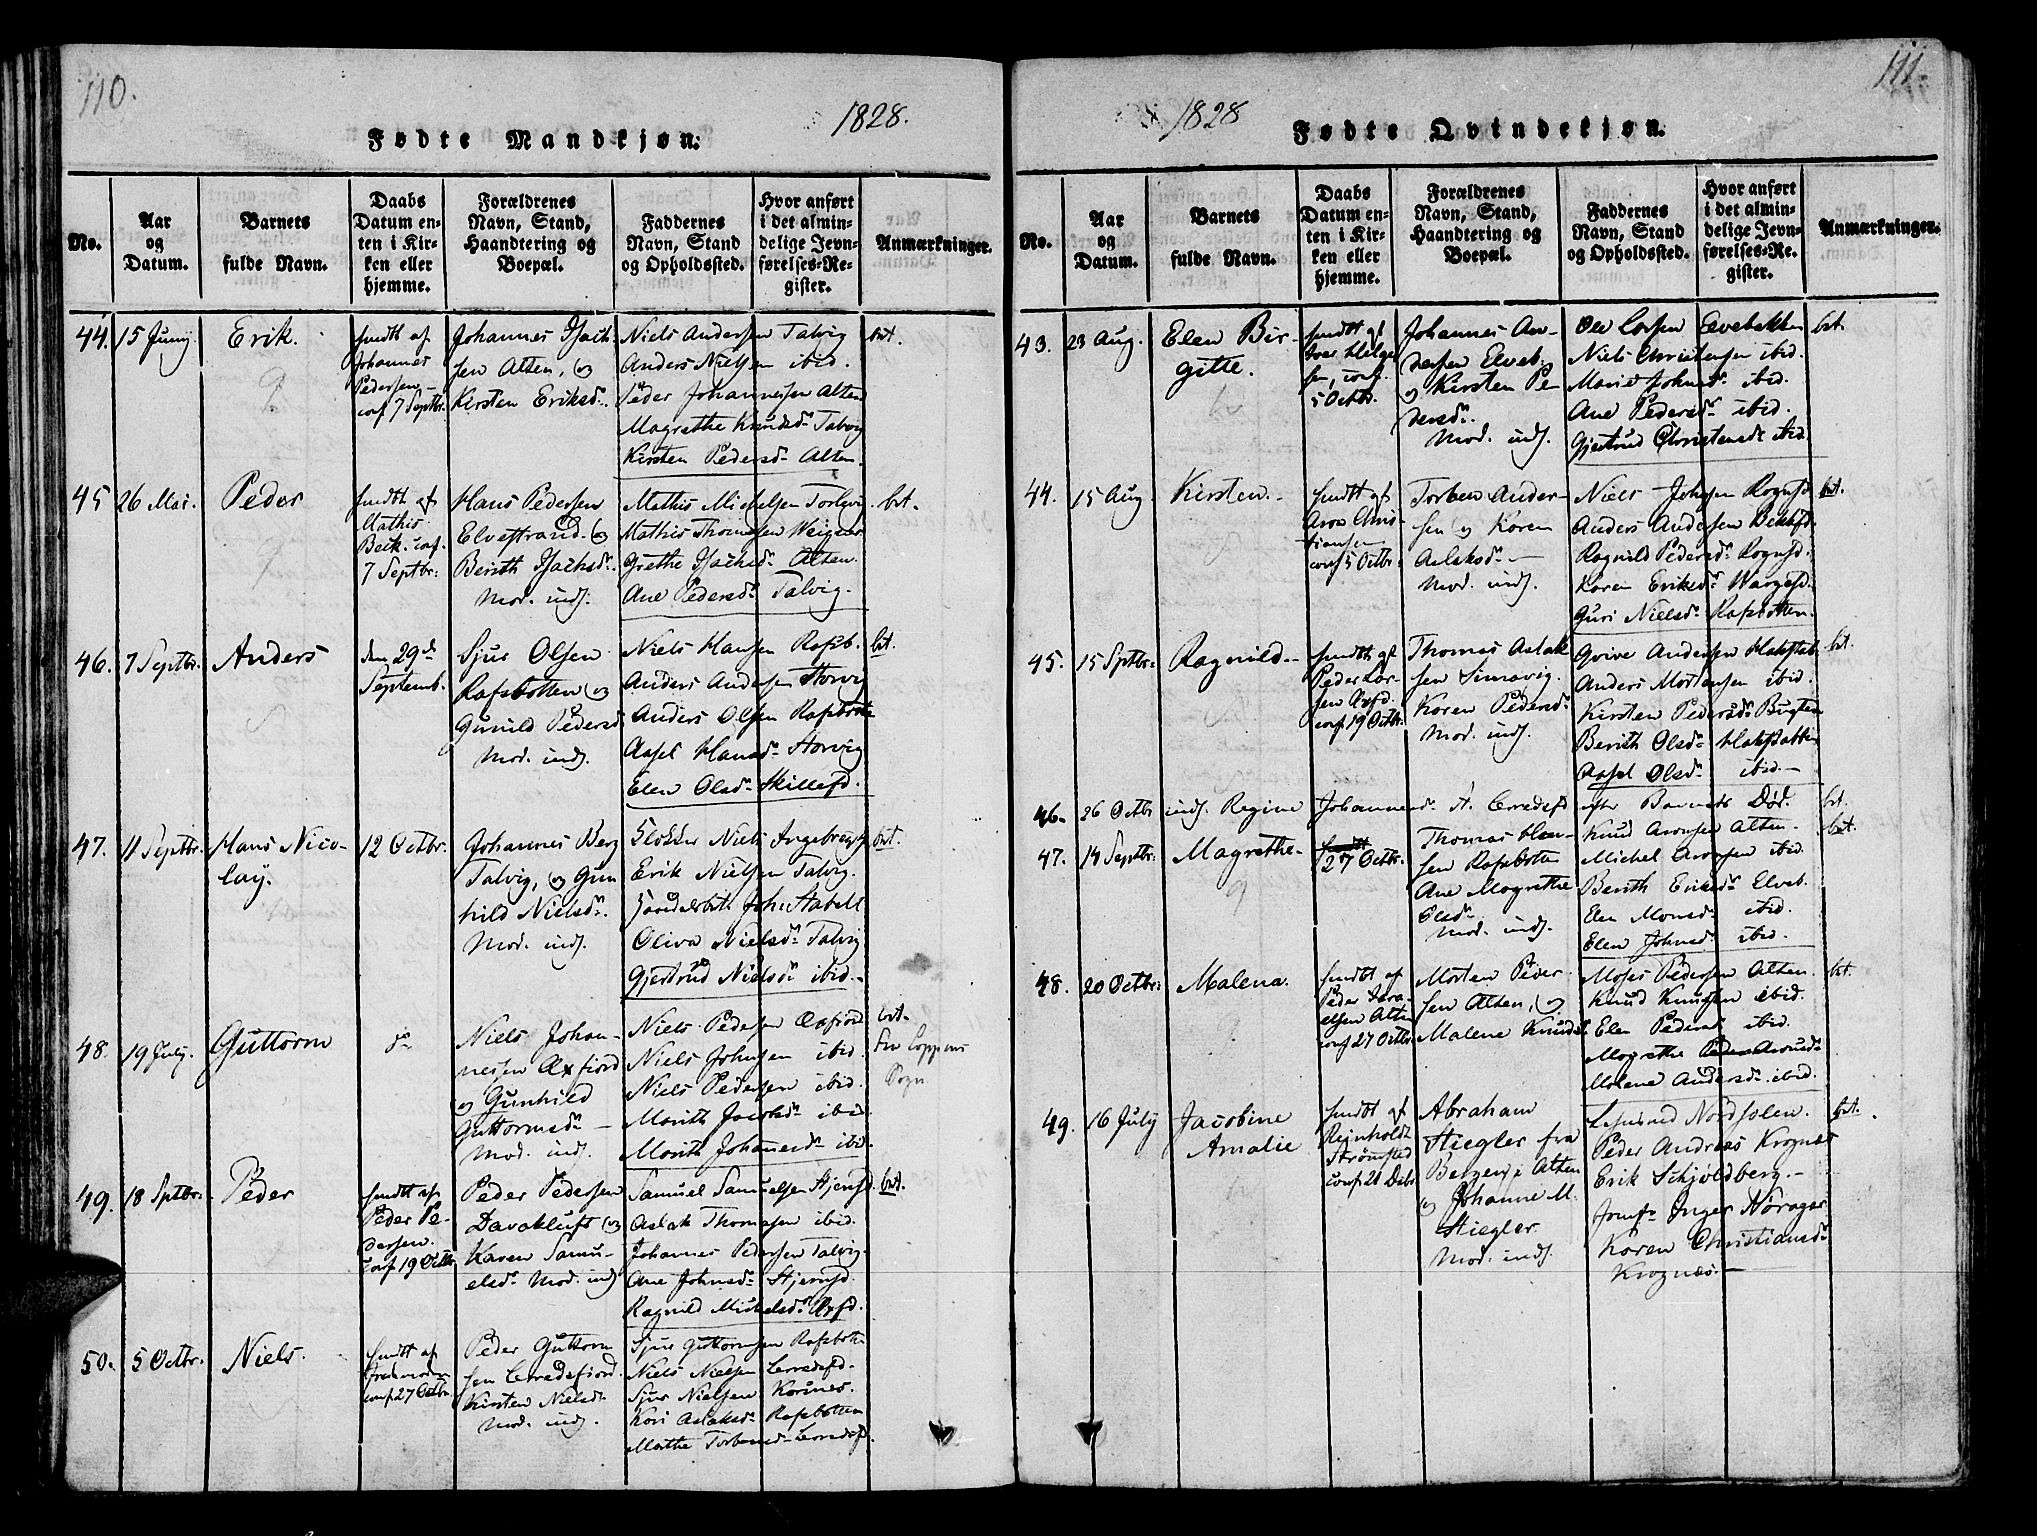 110.
1828.
Fødte Mandkjøn.
No.
Aar
og
Datum.
Barnets
fulde Navn.
Daabs
Datum en-
ten i Kir-
ken eller
hjemme.
Forældrenes
Navn, Stand,
Haandtering og
Boepæl.
Faddernes
Navn, Stand
og Opholdssted.
Hvor anført
i det almin-
delige Jevn-
førelses-Re-
gister.
Anmærkninger.
44. 15 Juny
Erik.
hmdt af
Johannes
Pedersen
conf 7 Septbr.
Johannes Isach
sen Alten, og
Kirsten Eriksdr.
Niels Andersen Talvig
Anders Nielsen ibid.
Peder Johannessen Alten
Magrethe Knudsdr Talvig
Kirsten Pedersdr Alten.
bt.
45 26 Mai.
Peder
hmdt af
Mathis
Beck. conf.
7 Septbr:
Hans Pedersen
Elvestrand og
Berith Isachsdr.
Mod. indf.
Mathis Michelsen
Mathis Thomesen
Grethe Isachsdr Alten.
Ane Pedersdr Talvig.
bt.
46. 7 Septbr.
Anders
den 29de
Septemb.
Sjur Olsen
Rafsbotten og
Gunild Pedersd
Mod. indf.
Niels Hansen Rafsb.
Anders Andersen Storvig
Anders Olsen Rafsbotn
Aasel Hansdr Storvig
Elen Olsdr Skillefd.
bt.
47. 11 Septbr.
Hans Nico-
lay.
12 Octbr.
Johannes Berg
Talvig, og Gun
hild Nielsdr.
Mod. indf.
Klokker Niels Ingebregtsen
Erik Nielsen Talvig.
John Stabell
Oliva Nielsdr Talvig
Gjertrud Nielsdr ibid.
bt.
48. 19 July.
Guttorm
do
Niels Johan-
nesen Øxfiord
og Gunhild
Guttormsdr
Mod. indf.
Niels Pedersen Øxfiord
Niels Johnsen ibid.
Niels Pedersen ibid.
Marith Jacobsdr ibid
Marith Johansdr ibid.
bt.
fra Loppens
Sogn
49. 18 Sptbr.
Peder
hmdt af
Peder Pe-
dersen.
conf 19 Octbr
Peder Pedersen
Davakluft og
Karen Samu-
elsdr Mod. indf
Samuel Samuelsen Stjernfd.
Aslak Thomesen ibid.
Johannes Pedersen Talvig
Ane Johnsdr Stjernfd.
Ragnild Michelsdr Øxfd.
bt.
50. 5 Octbr.
Niels.
hmdt af
Jordmoder
conf 27 Octbr.
Peder Guttorm
sen Lerredsfiord
Kirsten Nielsdr.
Mod. indf.
Sjur Guttormsen Rafsbotn
Niels Nielsen Lerredsfd.
Sjur Nielsen Korsnes.
Kari Aslaksdr Rafsbotten
Marthe Torbensdr Lerredsfd.
111.
1828
Fødte Qvindekjøn.
No.
Aar
og
Datum.
Barnets
fulde Navn.
Daabs
Datum en-
ten i Kir-
ken eller
hjemme.
Forældrenes
Navn, Stand,
Haandtering og
Boepæl.
Faddernes
Navn, Stand
og Opholdssted.
Hvor anført
i det almin-
delige Jevn-
førelses-Re-
gister.
Anmærkninger.
43. 23 Aug.
Elen Bir-
gitte.
hmdt af
Iver Helge
sen, conf.
5 Octbr.
Johannes An-
dersen Elveb.
og Kirsten Pe
dersdr.
Mod. indf.
Ole Larsen Elvebakken
Niels Christensen ibid.
Marie Johnsdr ibid.
Ane Pedersdr ibid.
Gjertrud Christensdr ibid.
bt.
44. 15 Aug.
Kirsten.
hmdt af
Aron Chris-
tiansen
conf 5 Octbr.
Torben Ander-
sen og Karen
Aslaksdr
Mod. indf.
Niels Johnsen Rognfd
Anders Andersen Bekkfd.
Ragnild Pedersdr Rognfd.
Karen Eriksdr Wargsfd.
Guri Nielsdr Rafsbotten
bt.
45. 15 Sptbr:
Ragnild
hmdt af
Peder Lar-
sen Øxfd.
conf 19 Octbr.
Thomas Aslak
sen Simavig.
Karen Pedersdr
Mod. indf.
Qvive Andersen Hakstab
Anders Mortensen ibid.
Kirsten Pedersdr Bugten
Berith Olsdr Hakstabben
Aasel Olsdr ibid.
bt.
46. 26 Octbr indf. Regine Johannesdr St. Lerredsfd efter Barnets Død. bt.
47. 14 Septbr:
Magrethe
27 Octbr.
Thomas Han-
sen Rafsbotten
Ane Magrethe
Olsdr
Mod. indf.
Knud Aronsen Alten.
Michel Aronsen ibid.
Berith Eriksdr Elveb.
Elen Monsdr ibid.
Elen Johnsdr ibid.
bt.
48. 20 Octbr:
Malena.
hmdt af
Peder Isra-
elsen Alten
conf 27 Octbr
Morten Peder
sen Alten, og
Malene Knudsdr
Moses Pedersen Alten.
Knud Knudsen ibid.
Elen Pedersdr ibid.
Magrethe Pedersdr
Malene Andersdr ibid.
bt.
49. 16 July
Jacobine
Amalie
hmdt af
Reinholdt
Strømsted
conf 21 Decbr
Abraham
Stiegler fra
Bergen, i Alten
og Johanne M.
Stiegler
Mod. indf.
Lehnsmd Nordfolen.
Peder Andreas Krognæs
Erik Schjoldberg.
Jomfr Inger Nørager
Karen Christiansdr
Krognæs.
bt.